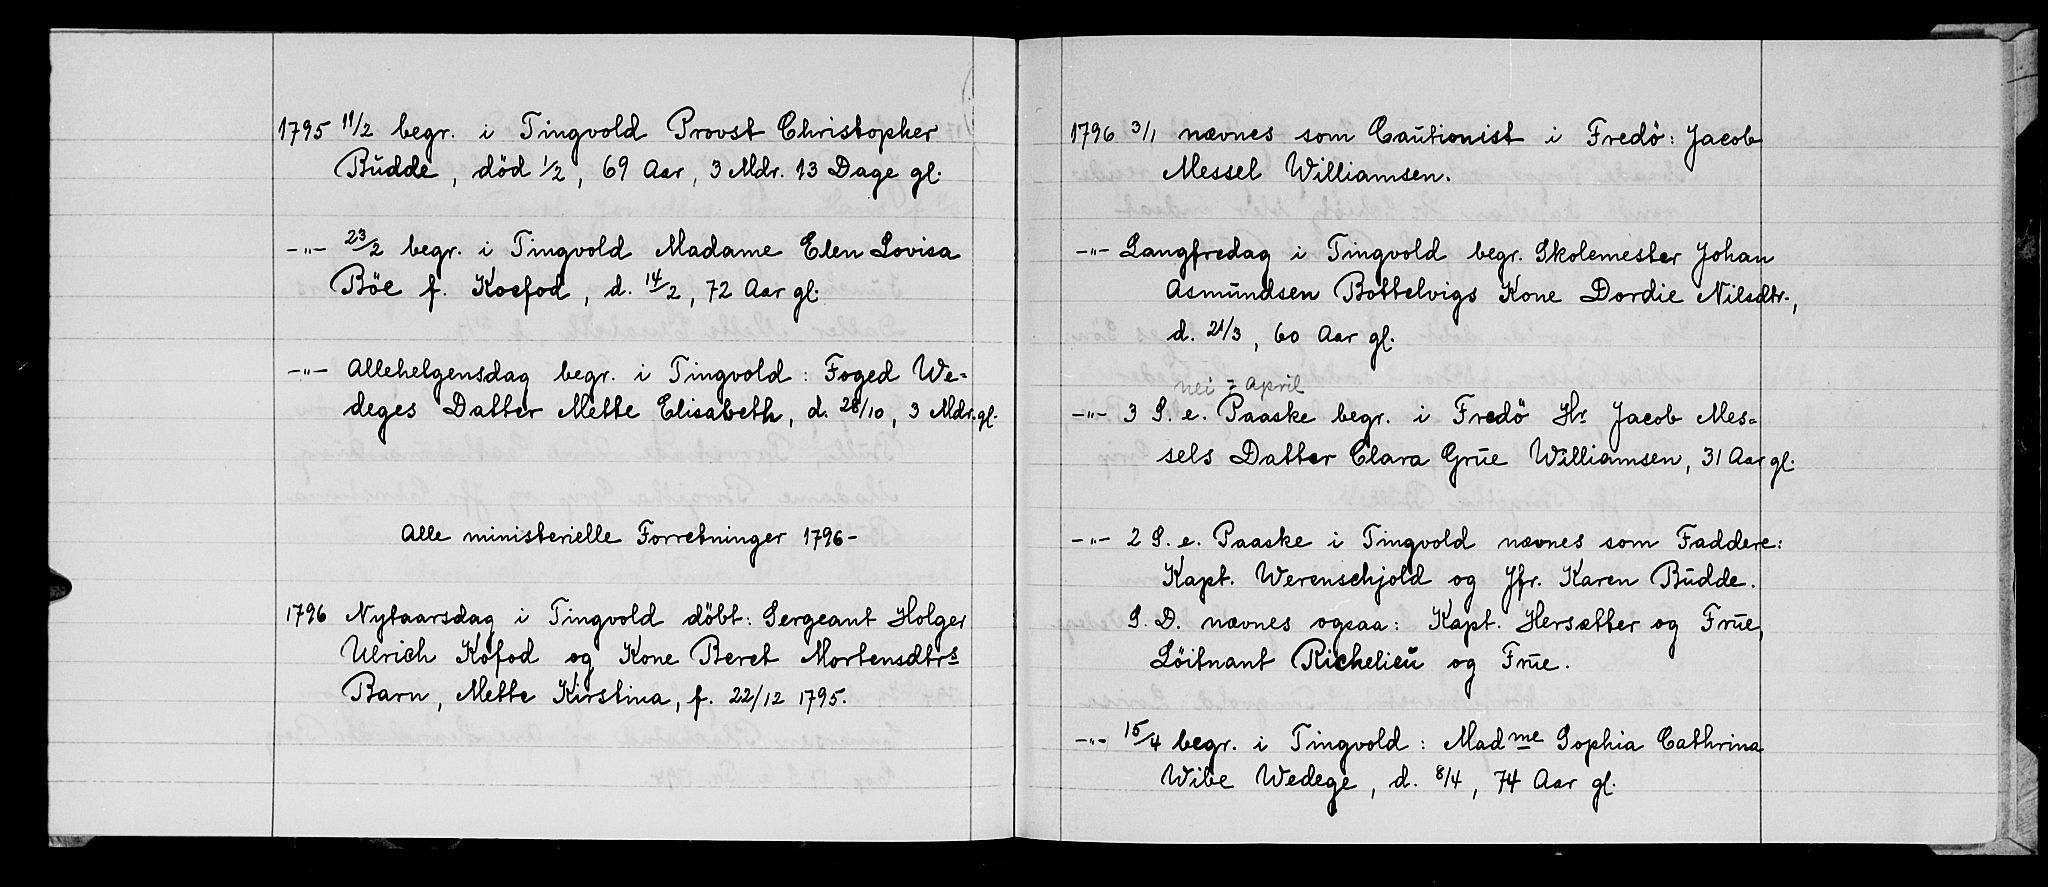 1795 11/2 begr. i Tingvold Provst Christopher
Budde, död 1/2, 69 Aar, 3 Mdr. 13 Dage gl.
-"- 23/2 begr. i Tingvold Madame Elen Lovisa
Böe f. Koefod, d. 14/2, 72 Aar gl.
-"- Allehelgensdag begr. i Tingvold: Foged We=
deges Datter Mette Elisabeth, d. 28/10, 3 Mdr. gl.
Alle ministerielle Forretninger 1796-
1796 Nytaarsdag i Tingvold döbt: Sergeant Holger
Ulrich Kofod og Kone Beret Mortensdtrs
Barn, Mette Kirstina, f. 22/12 1795.
1796 3/1 nævnes som Cautionist i Fredö: Jacob
Messel Williamsen.
-"- Langfredag i Tingvold begr. Skolemester Johan
Asmundsen Bottelvigs Kone Dordie Nilsdtr.,
d. 21/3, 60 Aar gl.
nei 7 April
-"- 3 S. e. Paaske begr. i Fredö Hr Jacob Mes=
sels Datter Clara Grue Williamsen, 31 Aar gl.
-"- 2 S. e. Paaske i Tingvold nævnes som Faddere:
Kapt. Werenschjold og Jfr. Karen Budde.
S. D. nævnes ogsaa: Kapt. Hersætter og Frue,
Löitnant Richelieu og Frue.
-"- 15/4 begr. i Tingvold: Madme Sophia Cathrina
Wibe Wedege, d. 8/4, 74 Aar gl.